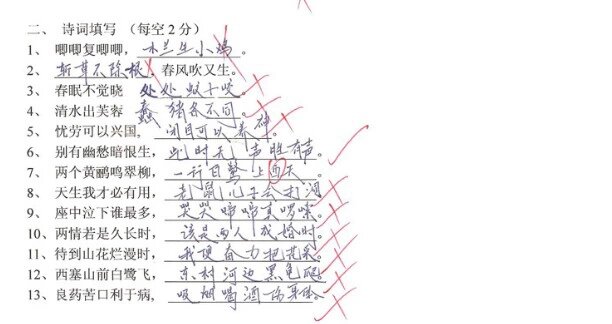 二、 诗词填写 （每空2分）
1、 唧唧复唧唧，木兰生小鸡。
2、 斩草不除根，春风吹又生。
3、 春眠不觉晓 处处蚊子咬。
4、 清水出芙蓉 蠢猪各不同。
5、 忧劳可以兴国, 闭目可以养神
6、 别有幽愁暗恨生，此时无声胜有声。
7、 两个黄鹂鸣翠柳，一行白鹭上西天。
8、 天生我才必有用，老鼠儿子会打洞
9、 座中泣下谁最多，哭哭啼啼真啰嗦。
10、 两情若是久长时，该是两人成婚时。
11、 待到山花烂漫时，我便奋力把花采。
12、 西塞山前白鹭飞，东村河边黑龟爬。
13、 良药苦口利于病, 吸烟喝酒伤身体。